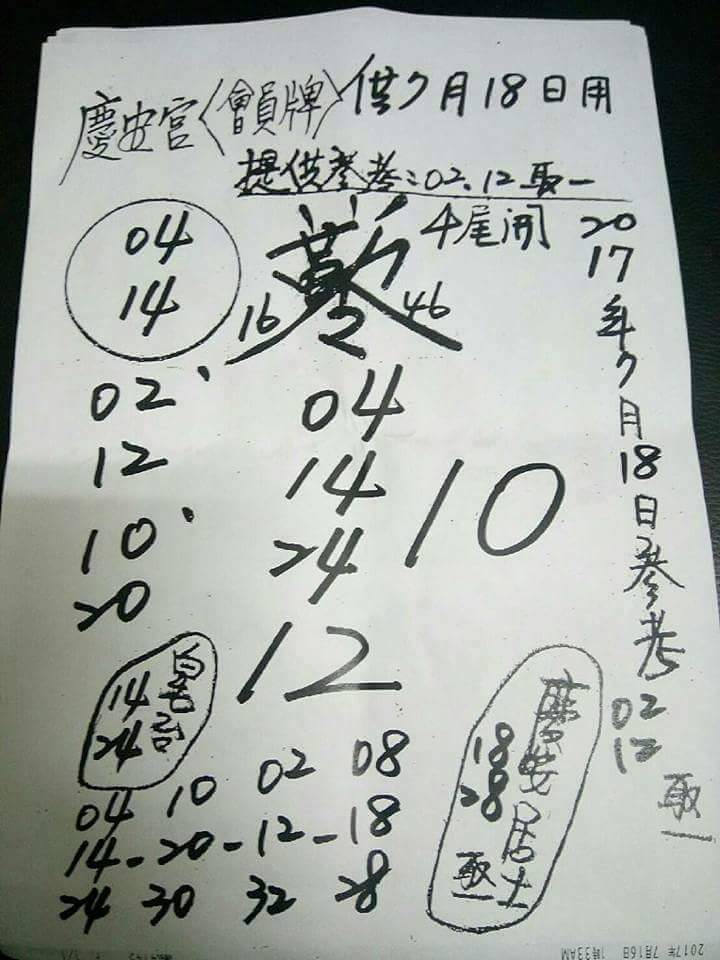 慶安宮〈會員牌〉供7月18日用
提供參考:02.12取一
04
14
4尾開
16 46
02、
12
10、
20
04
14
24
10
12
14
24
04 10 02 08
14-20-12-18
24 30 32 28
慶安居士
18
28
取一
2017年7月18日參考
02
12
取一
2017年 7月16日 1時33AM